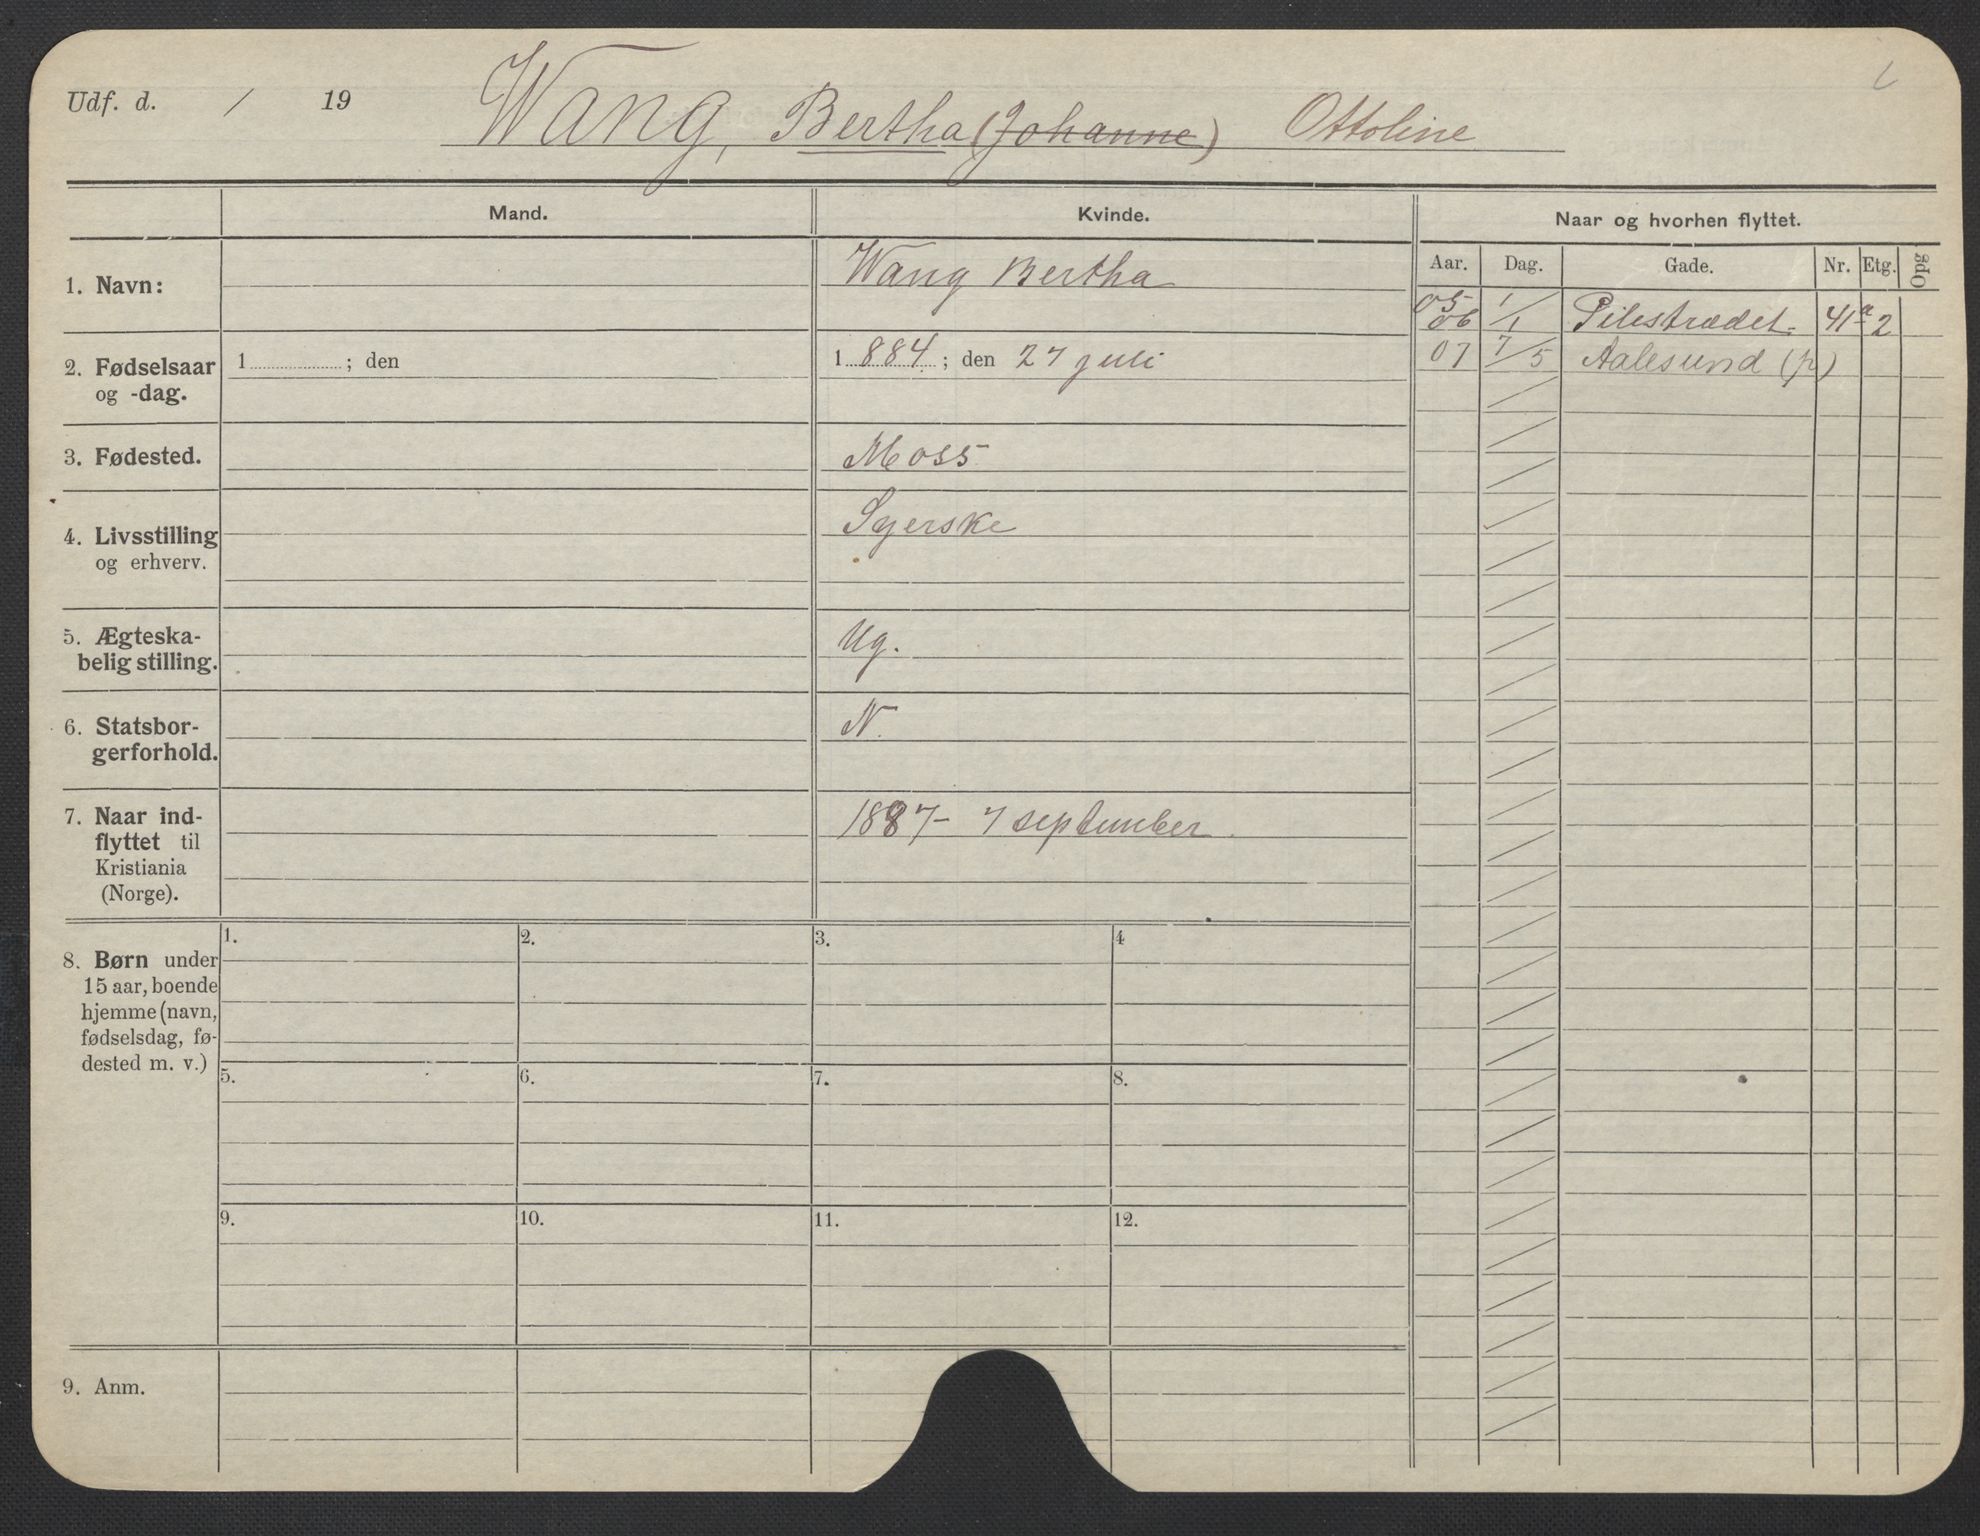 Udf. d. / 19
Wang, Bertha (Johanne) Ottoline
Mand.
Kvinde.
Naar og hvorhen flyttet.
Aar. Dag. Gade. Nr. Etg. Opg
1. Navn:
Wang Bertha
05
06 1/1 Pilestrædet 41a 2
07 7/5 Aalesund (p)
2. Fødselsaar
og -dag.
1 ; den
1 884 ; den 27 juli
3. Fødested.
Moss
4. Livsstilling
og erhverv.
Syerske
5. Ægteska-
belig stilling.
Ug.
6. Statsbor-
gerforhold.
N.
7. Naar ind-
flyttet til
Kristiania
(Norge).
1887 - 7 september
8. Børn under
15 aar, boende
hjemme (navn,
fødselsdag, fø-
dested m. v.)
1. 2. 3. 4
5. 6. 7. 8.
9. 10. 11. 12.
9. Anm.